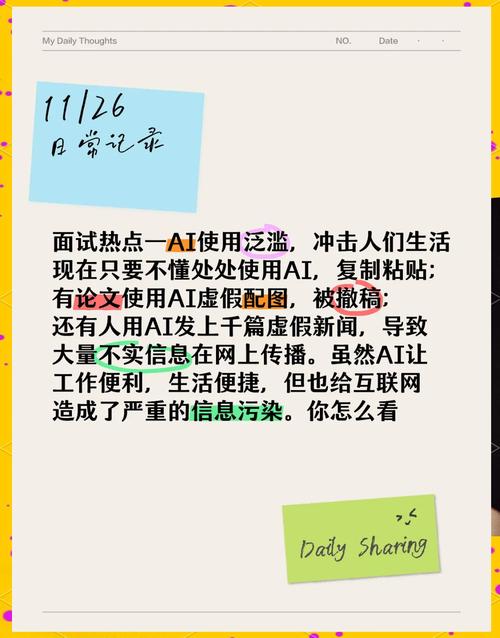 My Daily Thoughts NO. Date
11/26
日常记录
面试热点—AI使用泛滥，冲击人们生活
现在只要不懂处处使用AI，复制粘贴；
有论文使用AI虚假配图，被撤稿；
还有人用AI发上千篇虚假新闻，导致
大量不实信息在网上传播。虽然AI让
工作便利，生活便捷，但也给互联网
造成了严重的信息污染。你怎么看
Daily Sharing